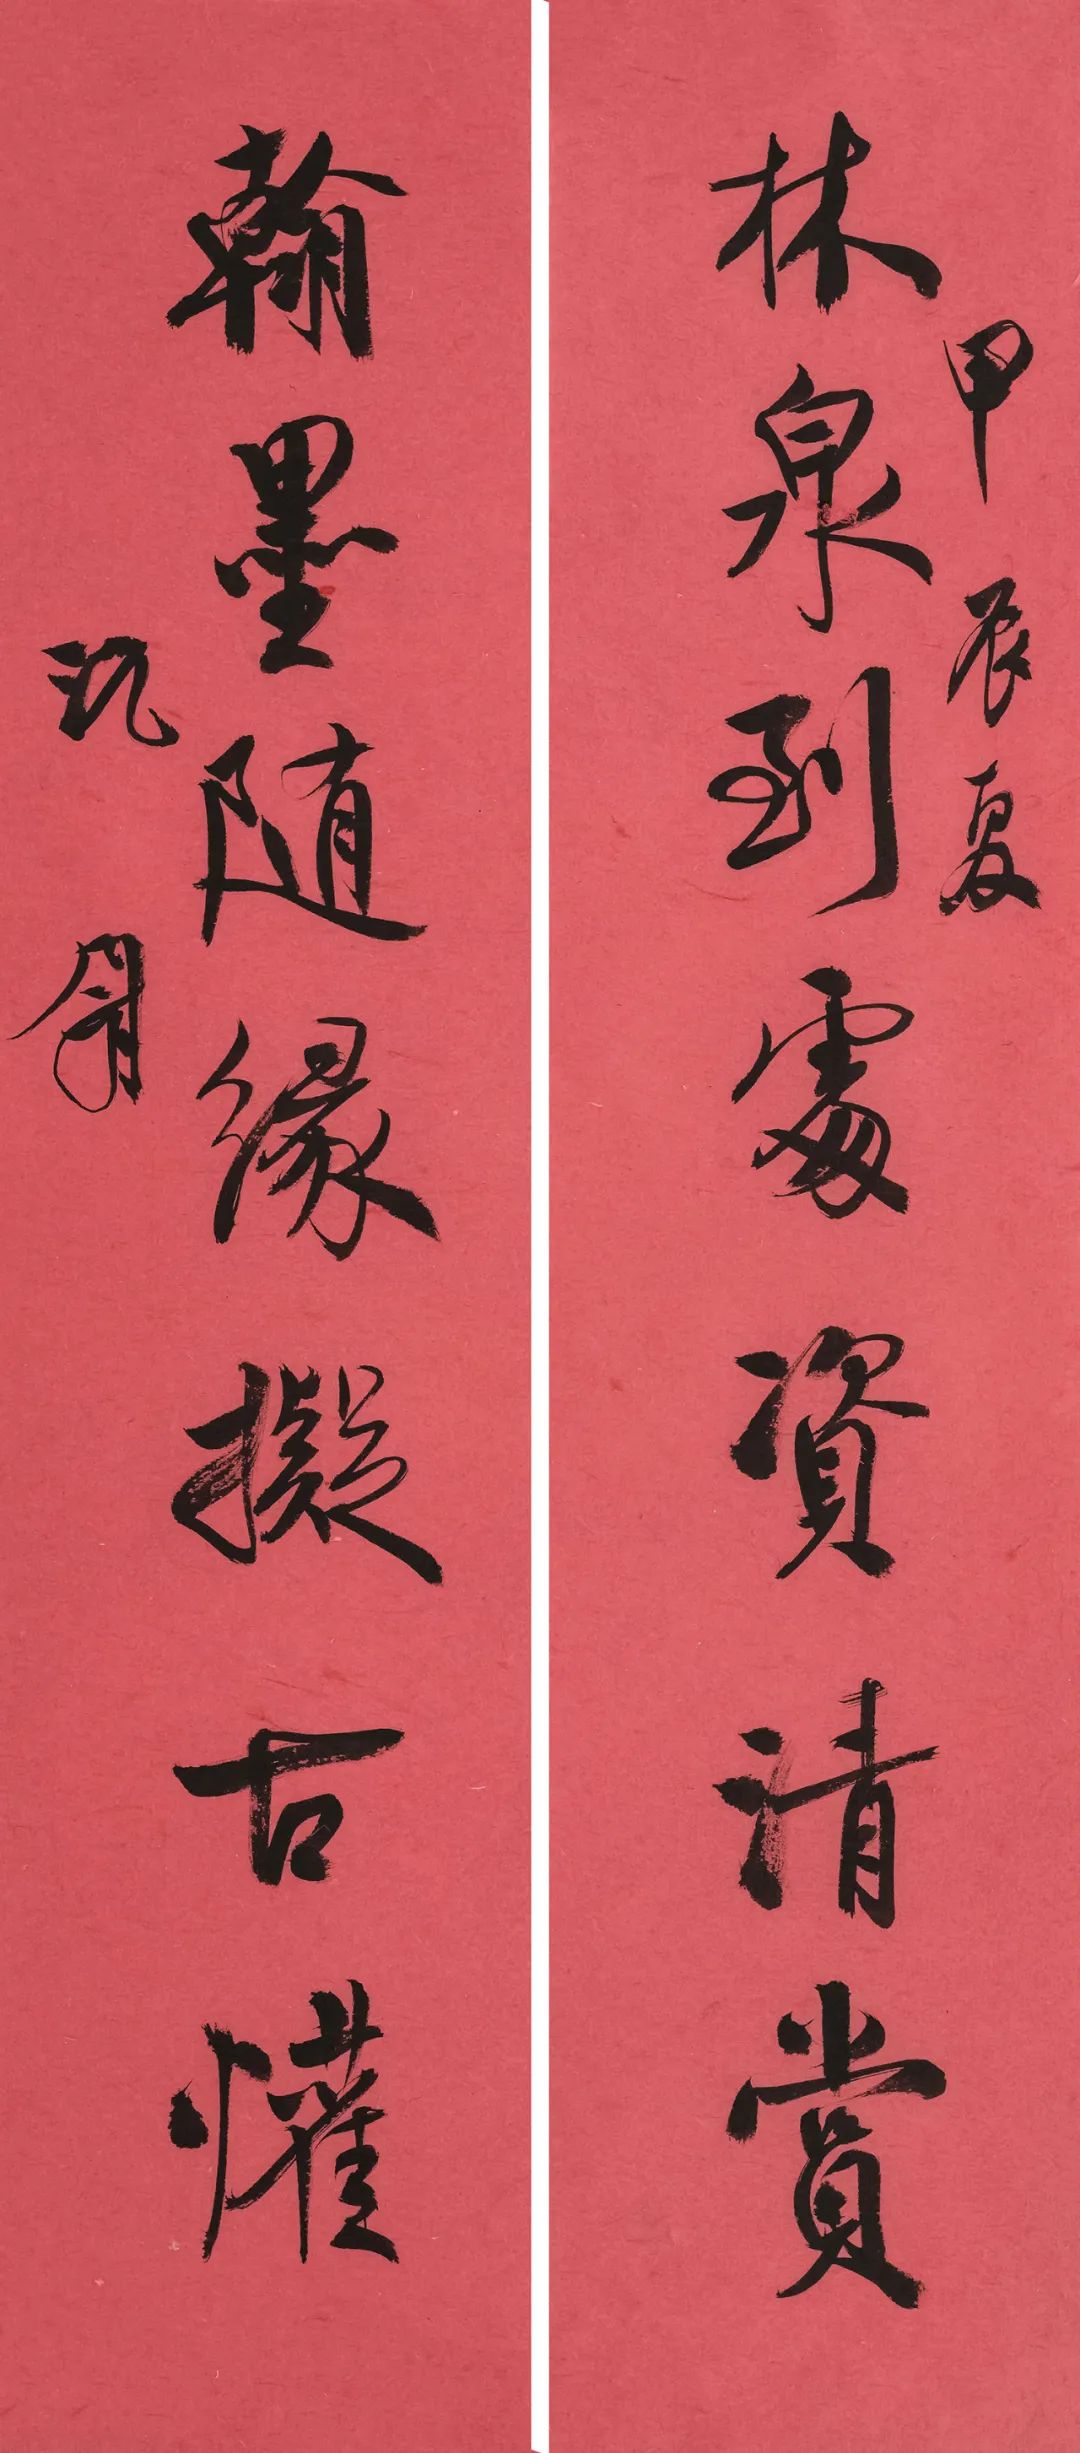 林泉到處資清賞
甲辰夏
翰墨随緣擬古懽